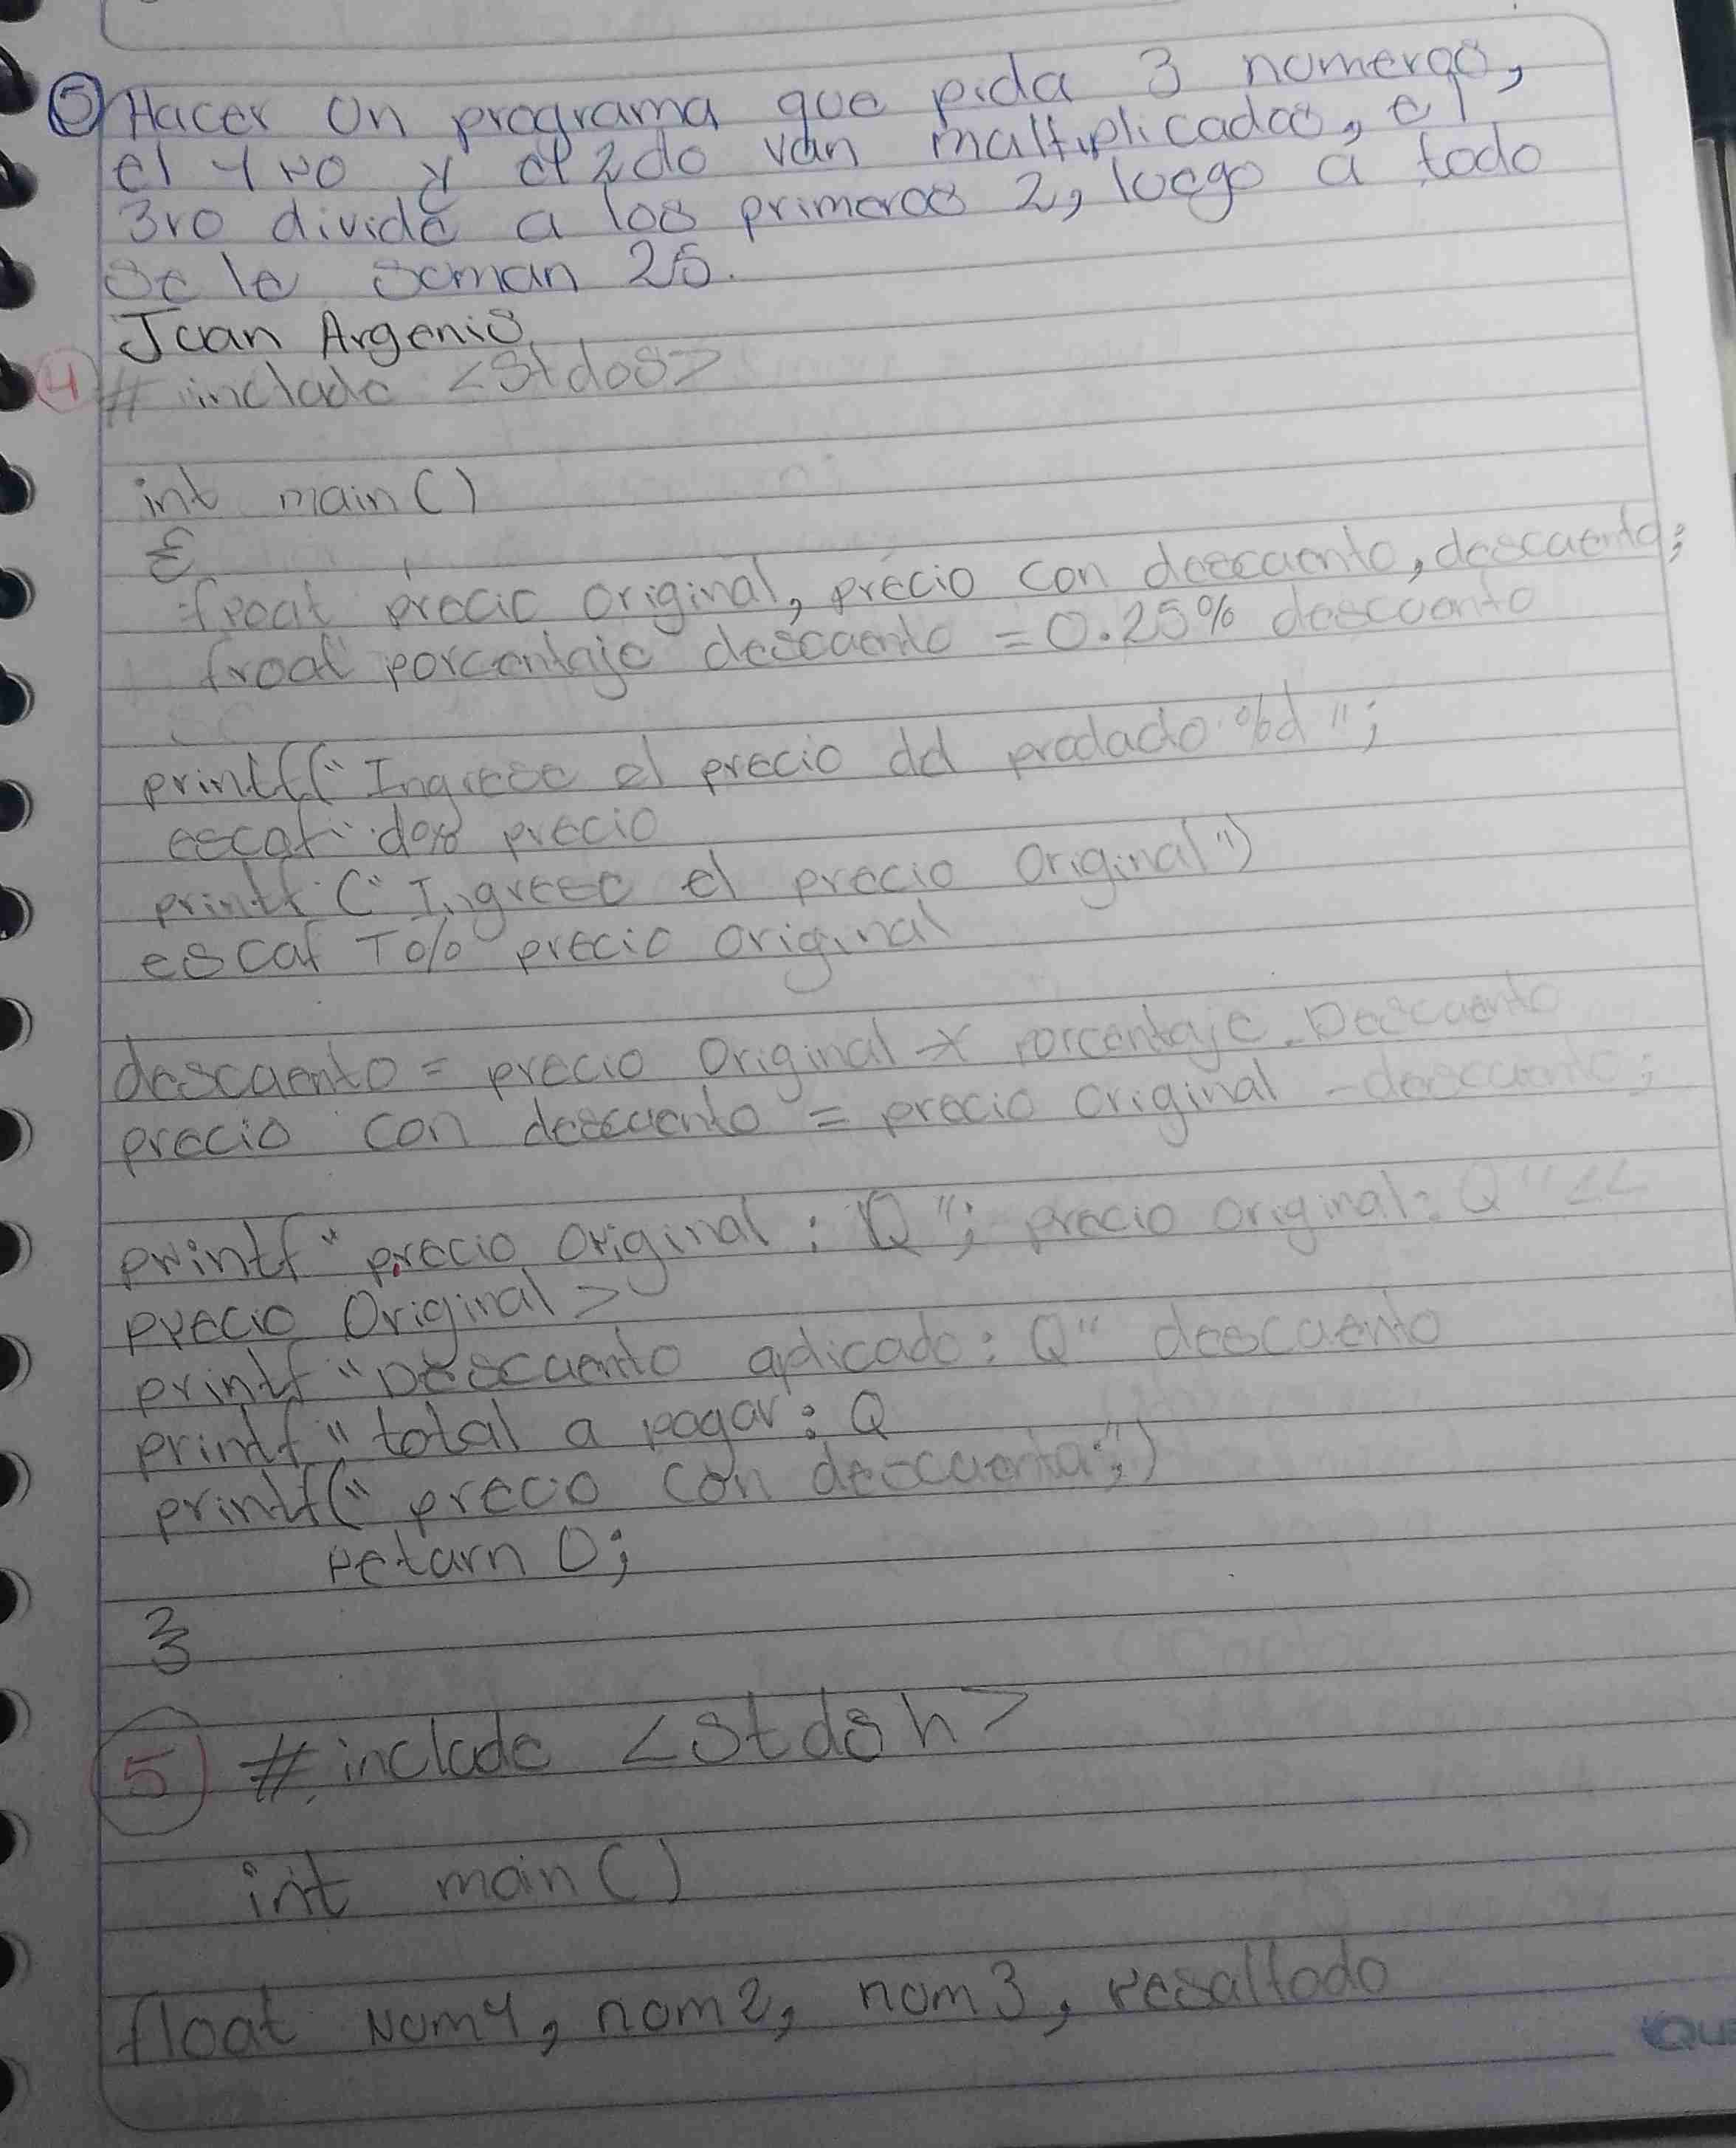 5 Hacer un programa que pida 3 numeros,
el 1ro y el 2do van multiplicados, el
3ro divide a los primeros 2, luego a todo
se le suman 25.
Juan Argenis
4 # include <stdos>
int main()
{
froat precio original, precio con descuento, descuento;
froat porcentaje descuento = 0.25% descuento
printf("Ingrese el precio del producto %d";
escaf do% precio
printf ("Ingrese el precio original")
escaf To% precio original
descuento = precio original * porcentaje_Descuento
precio con descuento = precio original - descuento;
printf "precio original: Q"; precio original: Q" <<
precio original >
printf "Descuento aplicado: Q" descuento
printf "total a pagar: Q
printf(" precio con descuenta;")
return 0;
}
5 # include <stdsh>
int main()
float num1, num2, num3, resultado